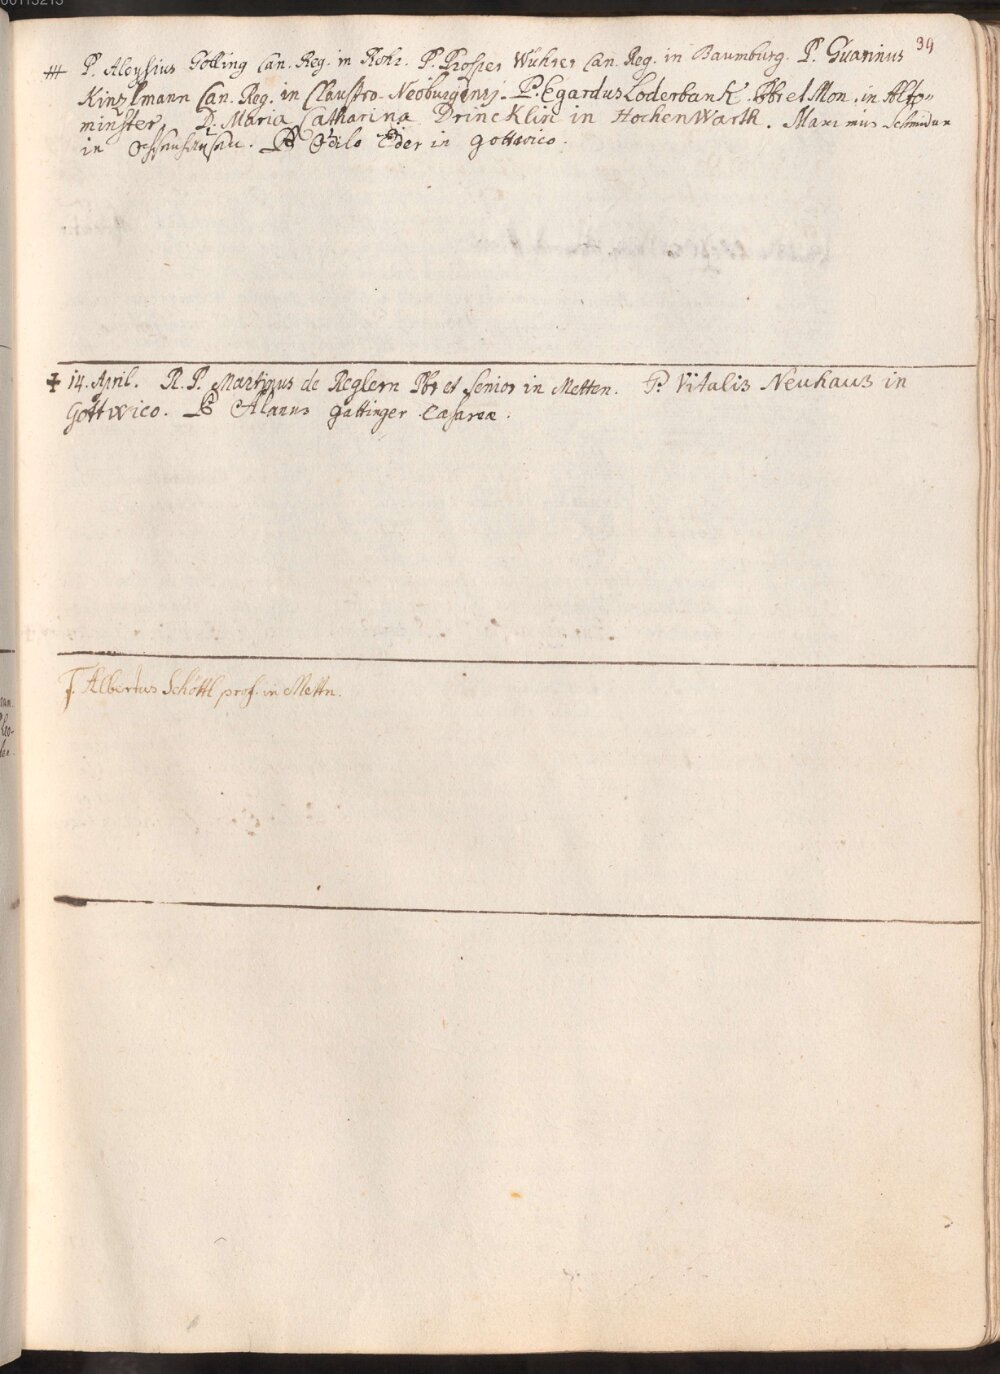 39
P. Aloysius Gölling Can. Reg. in Rohr. P. Prosper Wuhrer Can. Reg. in Baumburg. P. Guarinus
Kinzlmann Can. Reg. in Claustro-Neoburgensi. P. Egardus Loderbank. Pbr et Mon. in Alto-
minster. D. Maria Catharina Drincklin in Hochenwarth. Maximus
in P. Odilo Eder in Gottwico.
14. April. R. P. Martinus de Reglern Pbr et Senior in Metten. P. Vitalis Neuhaus in
Gottwico. P Alanus Gattinger Cæsareæ.
F. Albertus Schöttl prof. in Mettn.